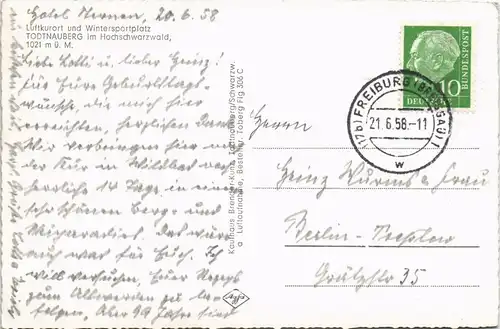 Hotel Sternen, 20.6.58
Luftkurort und Wintersportplatz
TODTNAUBERG im Hochschwarzwald,
1021 m ü. M.
Liebe Lotti u. lieber Heinz!
Für Eure Geburtstags-
wünsche, die mich hier
erreichten, herzlichen Dank.
Wir verbringen hier nach
der Kur in Wildbad noch
herrliche 14 Tage in einem
sehr schönen Berg- und
Skiparadies. Das wäre
auch was für Euch. Ich
will versuchen, Euer Rezept
zum Altwerden zu be-
folgen, Aber 99 Jahre sind
Kaufhaus Brender-Kunz, Todtnauberg/Schwarzw.
a Luftaufnahme, Bestell-Nr. Toberg Flg 306 C
DEUTSCHE BUNDESPOST
10
(17b) FREIBURG (BREISGAU) 1
21.6.58.-11
w
Herrn
Heinz Wurms u. Frau
Berlin-Treptow
Grätzstr 35